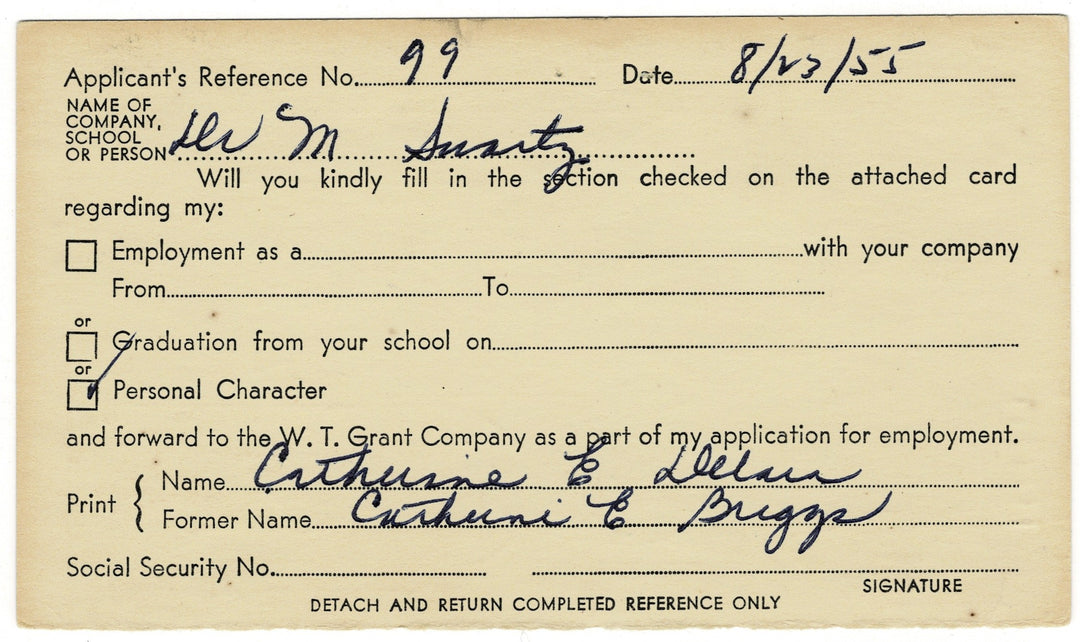 Applicant's Reference No. 99 Date 8/23/55
NAME OF
COMPANY,
SCHOOL
OR PERSON Dr M Swartz
Will you kindly fill in the section checked on the attached card
regarding my:
Employment as a with your company
From To
or
Graduation from your school on
or
Personal Character
and forward to the W. T. Grant Company as a part of my application for employment.
Print { Name Catherine E
Former Name Catherine E Briggs
Social Security No.
SIGNATURE
DETACH AND RETURN COMPLETED REFERENCE ONLY